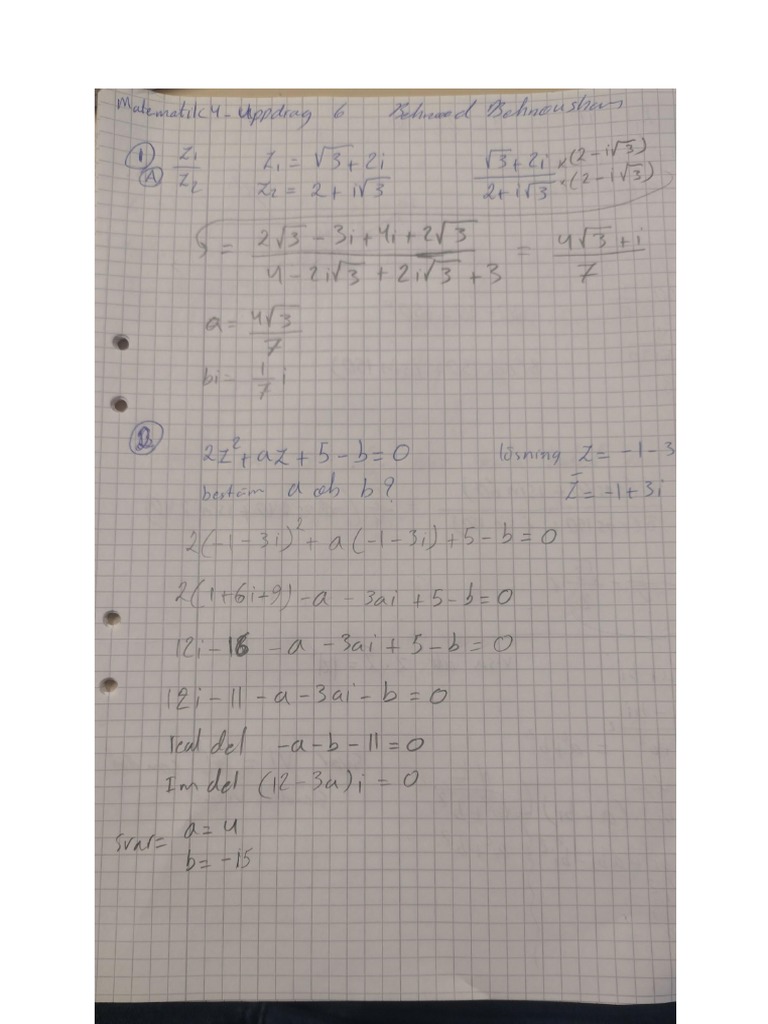 Matematik 4 - Uppdrag 6 Behnood Behnoushan
1) z₁/z₂ z₁ = √3 + 2i (√3 + 2i)/(2 + i√3) × (2 - i√3)/(2 - i√3)
A) z₂ = 2 + i√3
= (2√3 - 3i + 4i + 2√3)/(4 - 2i√3 + 2i√3 + 3) = (4√3 + i)/7
a = 4√3/7
bi = 1/7 i
2) 2z² + az + 5 - b = 0 lösning z = -1 - 3
bestäm a och b? z̄ = -1 + 3i
2(-1 - 3i)² + a(-1 - 3i) + 5 - b = 0
2(1 + 6i + 9) - a - 3ai + 5 - b = 0
12i - 16 - a - 3ai + 5 - b = 0
12i - 11 - a - 3ai - b = 0
real del -a - b - 11 = 0
Im del (12 - 3a)i = 0
svar = a = 4
b = -15